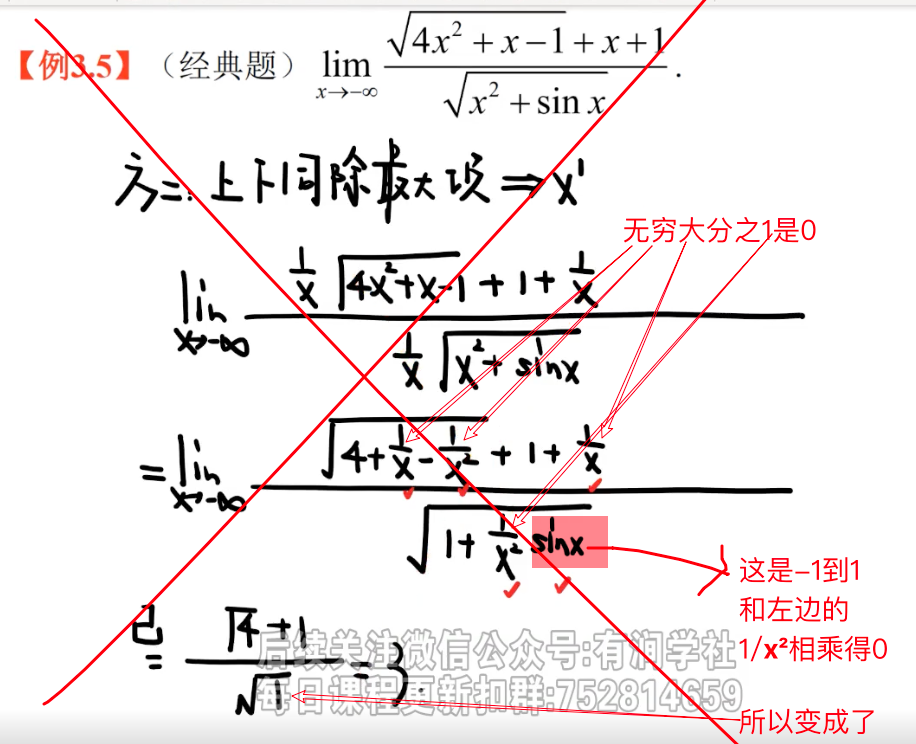 【例3.5】（经典题） lim x→-∞ (√(4x²+x-1)+x+1)/√(x²+sin x).
方二：上下同除最大项 ⇒ x¹
无穷大分之1是0
lim x→-∞ (1/x √(4x²+x-1) + 1 + 1/x)/(1/x √(x²+sinx))
= lim x→-∞ (√(4+1/x-1/x²) + 1 + 1/x)/√(1+1/x² sinx)
这是-1到1
和左边的
1/x²相乘得0
= (√4+1)/√1 = 3.
后续关注微信公众号:有润学社
每日课程更新扣群:752814659
所以变成了